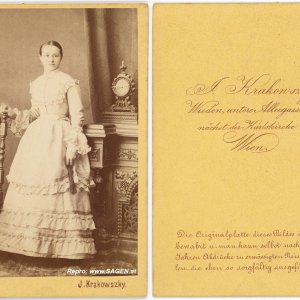 Repro: www.SAGEN.at
J. Krakowszky.
J. Krakowsz
Wieden, untere Alleegass
nächst der Karlskirche
Wien.
Die Originalplatte dieses Bildes
bewahrt u. man kann selbst nach
Jahren Abdrücke zu ermässigten Preis
len, die eben so sorgfältig ausgef